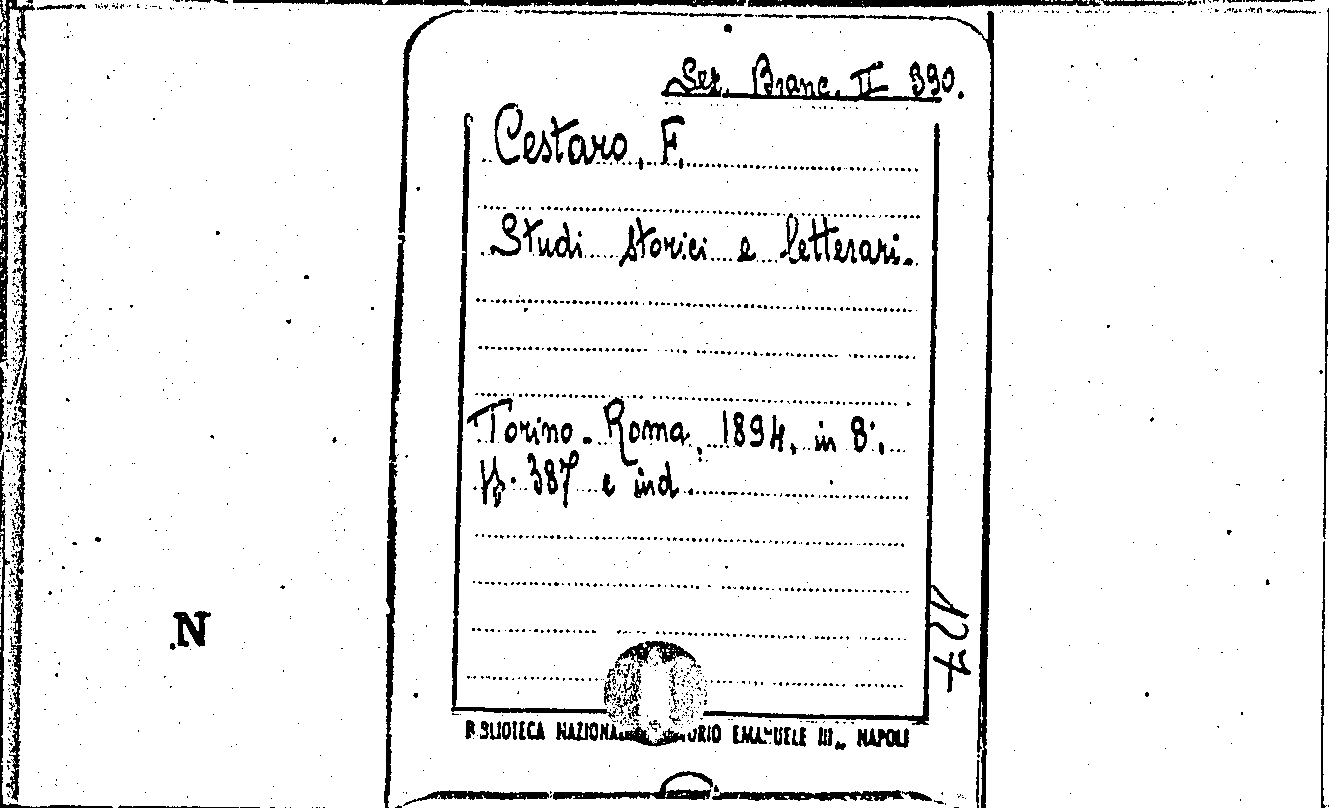 Sez. Branc. II 390.
Cestaro, F.
Studi storici e letterari.
Torino - Roma, 1894, in 8°.
pp. 387 e ind.
N
124
BIBLIOTECA NAZIONALE VITTORIO EMANUELE III - NAPOLI